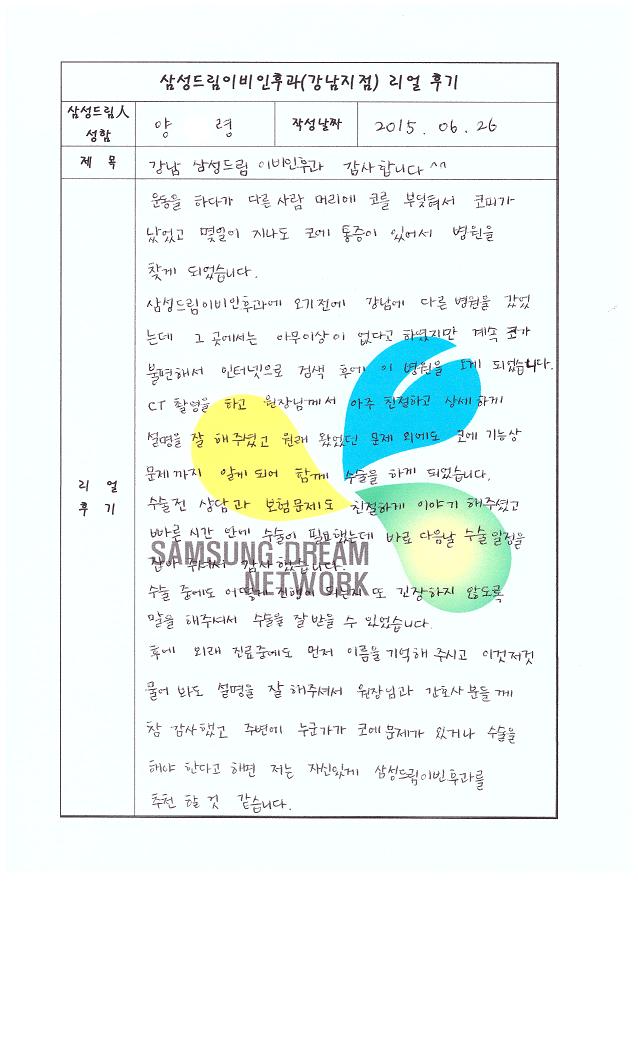 삼성드림이비인후과(강남지점) 리얼 후기
삼성드림人 성함
양 령
작성날짜
2015. 06. 26
제 목
강남 삼성드림 이비인후과 감사합니다 ^^
리 얼
후 기
운동을 하다가 다른 사람 머리에 코를 부딪혀서 코피가
났었고 몇일이 지나도 코에 통증이 있어서 병원을
찾게 되었습니다.
삼성드림이비인후과에 오기전에 강남에 다른 병원을 갔었
는데 그 곳에서는 아무이상이 없다고 하였지만 계속 코가
불편해서 인터넷으로 검색 후에 이 병원을 오게 되었습니다.
CT 촬영을 하고 원장님께서 아주 친절하고 상세하게
설명을 잘 해주셨고 원래 왔었던 문제 외에도 코에 기능상
문제까지 알게되어 함께 수술을 하게 되었습니다.
수술전 상담과 보험문제도 친절하게 이야기 해주셨고
빠른 시간 안에 수술이 필요했는데 바로 다음날 수술일정을
잡아 주셔서 감사했습니다.
수술 중에도 어떻게 진행이 되는지 또 긴장하지 않도록
말을 해주셔서 수술을 잘 받을 수 있었습니다.
후에 외래 진료중에도 먼저 이름을 기억해 주시고 이것저것
물어 봐도 설명을 잘 해주셔서 원장님과 간호사 분들께
참 감사했고 주변에 누군가가 코에 문제가 있거나 수술을
해야 한다고 하면 저는 자신있게 삼성드림이빈후과를
추천 할 것 같습니다.
SAMSUNG DREAM
NETWORK